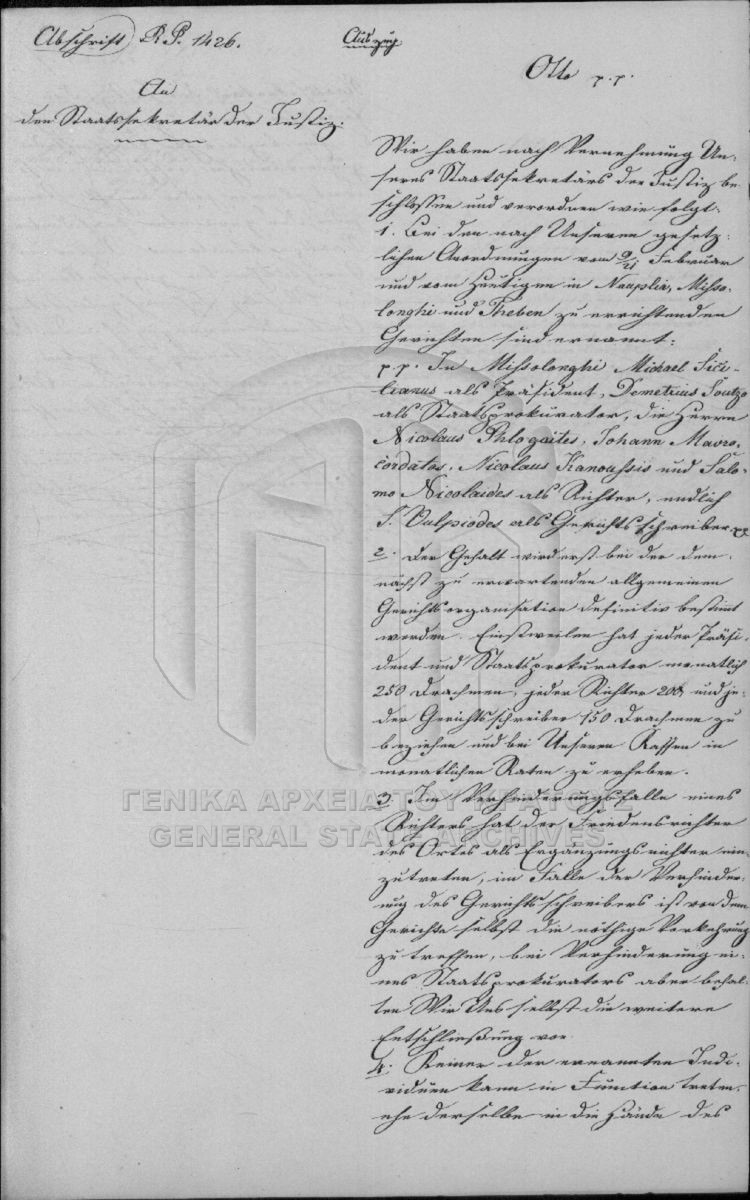 Abschrift R. P. 1426.
Auszug
An
den Staatssekretär der Justiz.
Otto p. p.
Wir haben nach Vernehmung Un-
seres Staatssekretärs der Justiz be-
schlossen und verordnen wie folgt:
1. Bei den nach Unseren gesetz-
lichen Anordnungen vom 9/21 Februar
und vom Heutigen in Nauplia, Misso-
longhi und Theben zu errichtenden
Gerichten sind ernannt:
p. p. In Missolonghi Michael Sici-
lianus als Präsident, Demetrius Soutzo
als Staatsprokurator, die Herrn
Nicolaus Phlogaites, Johann Mavro-
cordatos, Nicolaus Kanoussis und Salo-
mo Nicolaides als Richter, endlich
S. Vulpiodes als Gerichtsschreiber pp
2. Der Gehalt wird erst bei der dem-
nächst zu erwartenden allgemeinen
Gerichtsorganisation definitiv bestimt
werden. Einstweilen hat jeder Präsi-
dent und Staatsprokurator monatlich
250 Drachmen, jeder Richter 200, und je-
der Gerichtsschreiber 150 Drachmen zu
beziehen und bei Unseren Kassen in
monatlichen Raten zu erheben.
3. Im Verhinderungsfalle eines
Richters hat der Friedensrichter
des Ortes als Ergänzungsrichter ein-
zutreten, im Falle der Verhinder-
ung des Gerichtsschreibers ist von dem
Gerichte selbst die nöthige Vorkehrung
zu treffen, bei Verhinderung ei-
nes Staatsprokurators aber behal-
ten Wir Uns selbst die weitere
Entschließung vor.
4. Keiner der ernannten Indi-
viduen kann in Function treten,
ehe derselbe in die Hände des
ΓΕΝΙΚΑ ΑΡΧΕΙΑ ΤΟΥ ΚΡΑΤΟΥΣ
GENERAL STATE ARCHIVES